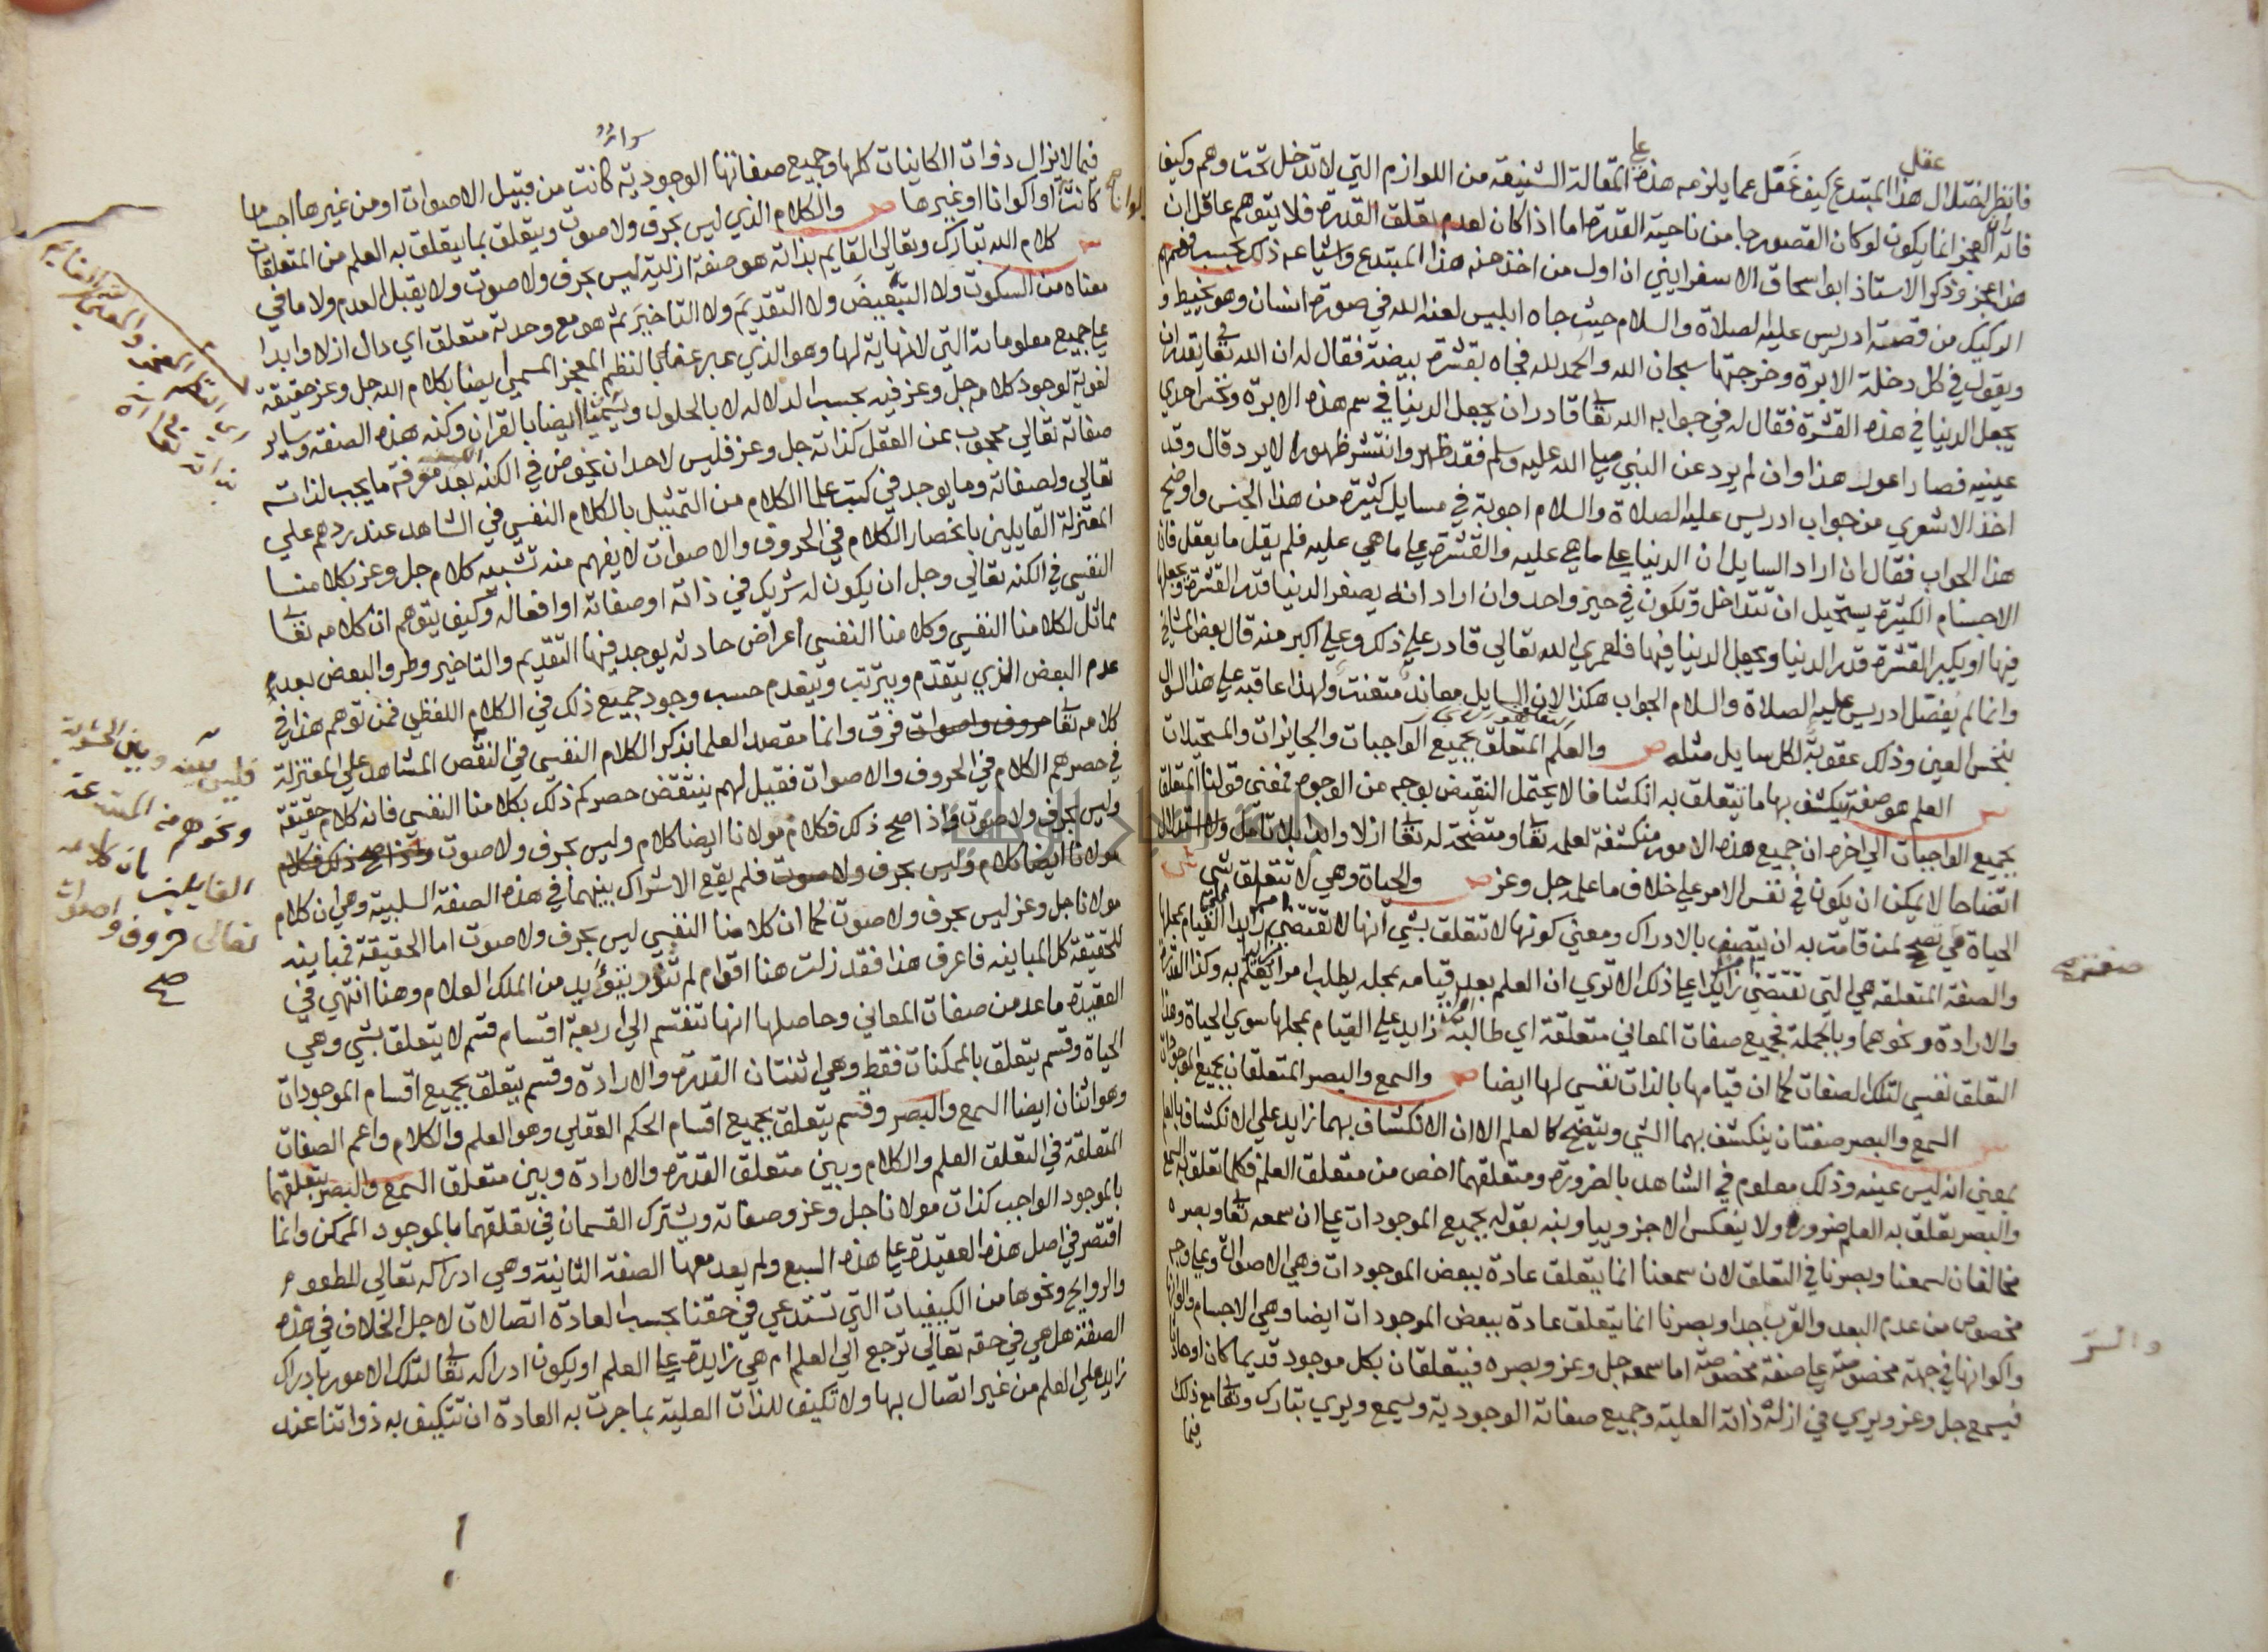 عقل
علي
فانظر اختلال هذا المبتدع كيف غفل عما يلزمه هذه المقالة الشنيعة من اللوازم التي لا تدخل تحت وهم وكيف
فاته ان العجز انما يكون لو كان القصور جا من ناحية القدرة اما اذا كان لعدم تعلق القدرة فلا يتوهم عاقل ان
هذا عجز وذكر الاستاذ ابو اسحاق الاسفرايني ان اول من اخذ منه هذا المبتدع واشياعه ذلك بحسب فهمهم
الركيك من قصة ادريس عليه الصلاة والسلام حيث جاه ابليس لعنه الله في صورة انسان وهو يخيط و
ويقول في كل دخلة الابرة وخرجتها سبحان الله والحمد لله فجاه بقشرة بيضة فقال له ان الله تعا يقدر ان
يجعل الدنيا في هذه القشرة فقال له في جوابه الله تعا قادر ان يجعل الدنيا في سم هذه الابرة ونخس احدي
عينيه فصار اعور هذا وان لم يرد عن النبي صلي الله عليه وسلم فقد ظهر وانتشر ظهورا لا يرد قال وقد
اخذ الاشعري من جواب ادريس عليه الصلاة والسلام اجوبة في مسايل كثيرة من هذا الجنس واوضح
هذا الجواب فقال ان اراد السايل ان الدنيا علي ما هي عليه والقشرة علي ما هي عليه فلم يقل ما يعقل فان
الاجسام الكثيرة يستحيل ان تتداخل وتكون في حيز واحد وان اراد انه يصغر الدنيا قدر القشرة ويجعلها
فيها او يكبر القشرة قدر الدنيا ويجعل الدنيا فيها فلعمري الله تعالي قادر علي ذلك وعلي اكبر منه قال بعض المشايخ
وانما لم يفصل ادريس عليه الصلاة والسلام الجواب هكذا لان السايل معاند متعنت ولهذا عاقبه علي هذا السوال
بنخس العين وذلك عقوبة لكل سايل مثله ص والعلم المتعلق بجميع الواجبات والجايزات والمستحيلات
ش العلم هو صفة ينكشف بها ما تتعلق به انكشافا لا يحتمل النقيض بوجه من الوجوه فمعني قولنا المتعلق
بجميع الواجبات الي اخره ان جميع هذه الامور منكشفة لعلمه تعا ومتضحة له تعا ازلا وابدا بلا تامل ولا استدلال
اتضاحا لا يمكن ان يكون في نفس الامر علي خلاف ما علمه جل وعز ص والحياة وهي لا تتعلق بشي ش
الحياة هي تصحح لمن قامت به ان يتصف بالادراك ومعني كونها لا تتعلق بشي انها لا تقتضي زايدا القيام بمحلها
صفة
والصفة المتعلقة هي التي تقتضي زايدا علي ذلك الا تري ان العلم بعد قيامه بمحله يطلب امرا يعلم به وكذا القدرة
والارادة ونحوهما وبالجملة فجميع صفات المعاني متعلقة اي طالبة لزايد علي القيام بمحلها سوي الحياة وهذا
التعلق نفسي لتلك الصفات كما ان قيامها بالذات نفسي لها ايضا ص والسمع والبصر المتعلقان بجميع الموجودات
ش السمع والبصر صفتان ينكشف بهما الشي ويتضح كالعلم الا ان الانكشاف بهما زايد علي الانكشاف بالعلم
بمعني انه ليس عينه وذلك معلوم في الشاهد بالضرورة ومتعلقهما اخص من متعلق العلم فكلما تعلق به السمع
والبصر تعلق به العلم ضرورة ولا ينعكس الا جزوييا ونبه بقوله بجميع الموجودات علي ان سمعه تعا وبصره
مخالفان لسمعنا وبصرنا في التعلق لان سمعنا انما يتعلق عادة ببعض الموجودات وهي الاصوات وعلي وجه
مخصوص من عدم البعد والقرب جدا وبصرنا انما يتعلق عادة ببعض الموجودات ايضا وهي الاجسام والوانها
واكوانها في جهة مخصوصة علي صفة مخصوصة اما سمعه جل وعز وبصره فيتعلقان بكل موجود قديما كان او حادثا
فيسمع جل وعز ويري في ازله ذاته العلية وجميع صفاته الوجودية ويسمع ويري تبارك وتعا مع ذلك
فيما
فيما لا يزال ذوات الكاينات كلها وجميع صفاتها الوجودية كانت من قبيل الاصوات او من غيرها اجساما
كانت او اكوانا او غيرها ص والكلام الذي ليس بحرف ولا صوت ويتعلق بما يتعلق به العلم من المتعلقات
ش كلام الله تبارك وتعالي القايم بذاته هو صفة ازلية ليس بحرف ولا صوت ولا يقبل العدم ولا ما في
معناه من السكوت ولا التبعيض ولا التقديم ولا التاخير ثم هو مع وحدته متعلق اي دال ازلا وابدا
علي جميع معلوماته التي لا نهاية لها وهو الذي عبر عنه بالنظم المعجز المسمي ايضا بكلام الله جل وعز حقيقة
لغوية لوجود كلامه جل وعز فيه بحسب الدلالة لا بالحلول ويسمي ايضا بالقران وكنه هذه الصفة وساير
صفاته تعالي محجوب عن العقل كذاته جل وعز فليس لاحد ان يخوض في الكنه بعد معرفة ما يجب لذاته
تعالي ولصفاته وما يوجد في كتب علما الكلام من التمثيل بالكلام النفسي في الشاهد عند ردهم علي
المعتزلة القايلين بانحصار الكلام في الحروف والاصوات لا يفهم منه تشبيه كلامه جل وعز بكلامنا
النفسي في الكنه تعالي وجل ان يكون له شريك في ذاته او صفاته او افعاله وكيف يتوهم ان كلامه تعا
مماثل لكلامنا النفسي وكلامنا النفسي اعراض حادثه يوجد فيها التقديم والتاخير وطرو البعض بعد
عدم البعض الذي يتقدم ويترتب وينعدم حسب وجود جميع ذلك في الكلام اللفظي فمن توهم هذا في
كلامه تعا حروف واصوات فرق وانما مقصد العلما بذكر الكلام النفسي في النقض المشاهد علي المعتزلة
في حصرهم الكلام في الحروف والاصوات فقيل لهم ينتقض حصركم ذلك بكلامنا النفسي فانه كلام حقيقة
وليس بحرف ولا صوت واذا صح ذلك فكلام مولانا ايضا كلام وليس بحرف ولا صوت واذا صح ذلك فكلام
مولانا ايضا كلام وليس بحرف ولا صوت فلم يقع الاشتراك بينهما في هذه الصفة السلبية وهي ان كلام
مولانا جل وعز ليس بحرف ولا صوت كما ان كلامنا النفسي ليس بحرف ولا صوت اما الحقيقة فمباينه
للحقيقة كل المباينه فاعرف هذا فقد زلت هنا اقوام لم تؤيد بتوايد من الملك العلام وهنا انتهي في
العقيدة ما عد من صفات المعاني وحاصلها انها تنقسم الي اربعة اقسام قسم لا يتعلق بشي وهي
الحياة وقسم يتعلق بالممكنات فقط وهي اثنتان القدرة والارادة وقسم يتعلق بجميع اقسام الموجودات
وهو اثنان ايضا السمع والبصر وقسم يتعلق بجميع اقسام الحكم العقلي وهو العلم والكلام واعم الصفات
المتعلقة في التعلق العلم والكلام وبين متعلق القدرة والارادة وبين متعلق السمع والبصر بتعلقهما
بالموجود الواجب كذات مولانا جل وعز وصفاته ويشترك القسمان في تعلقهما بالموجود الممكن وانما
اقتصر في اصل هذه العقيدة علي هذه السبع ولم يعد معها الصفة الثانية وهي ادراكه تعالي للطعوم
والروايح ونحوها من الكيفيات التي تستدعي في حقنا بحسب العادة اتصالات لاجل الخلاف في هذه
الصفة هل هي في حقه تعالي ترجع الي العلم ام هي زايدة علي العلم او يكون ادراكه تعا لتلك الامور بادراك
زايد علي العلم من غير اتصال بها ولا تكيف للذات العلية بما جرت به العادة ان تتكيف به ذواتنا عند
فليس بينه وبين الحشوية
ونحوهم من المبتدعة
القايلين بان كلامه
تعالي حروف واصوات
صح